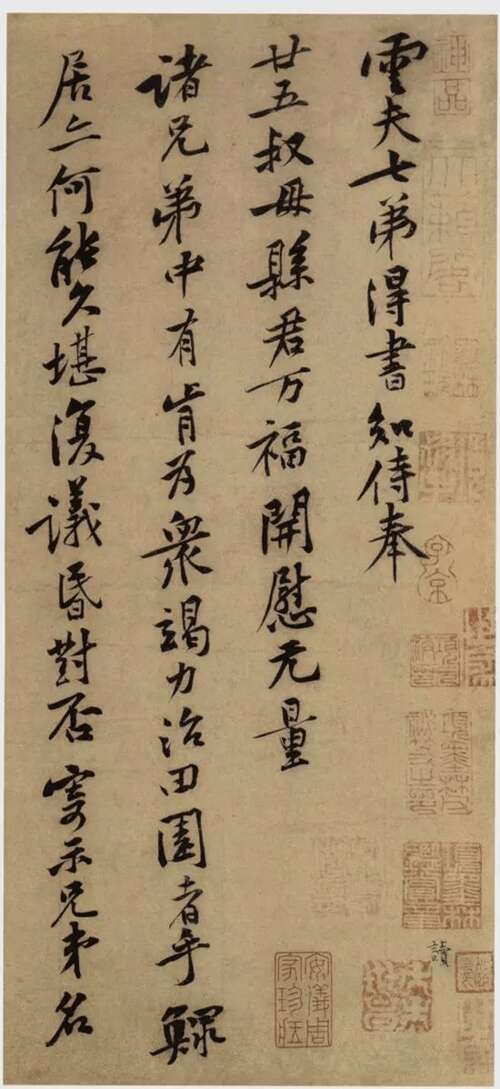 雲夫七弟得書知侍奉
廿五叔母縣君万福開慰无量
諸兄弟中有肯為衆竭力治田園者乎鰥
居亦何能久堪復議昏對否寄示兄弟名
神品
子京
讀
安儀周家珍藏